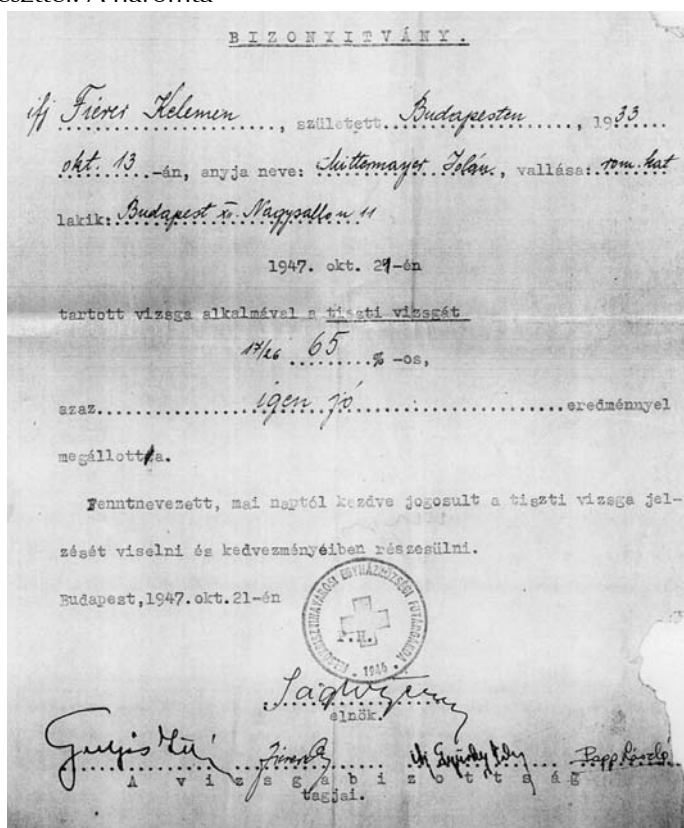 BIZONYITVÁNY.
ifj Fierer Kelemen, született Budapesten, 1933
okt. 13.-án, anyja neve: Mittermayer Jolán, vallása: rom. kat
lakik: Budapest XII. Nagysallo u 11
1947. okt. 21-én
tartott vizsga alkalmával a tiszti vizsgát
17/26 65 % -os,
azaz igen jó eredménnyel
megállotta.
Fenntnevezett, mai naptól kezdve jogosult a tiszti vizsga jel-
zését viselni és kedvezményeiben részesülni.
Budapest,1947.okt.21-én
FELSŐKRISZTINAVÁROSI EGYHÁZKÖZSÉGI FUTÁRGÁRDA
1946
P.H.
elnök.
Papp László
A vizsgabizottság
tagjai.